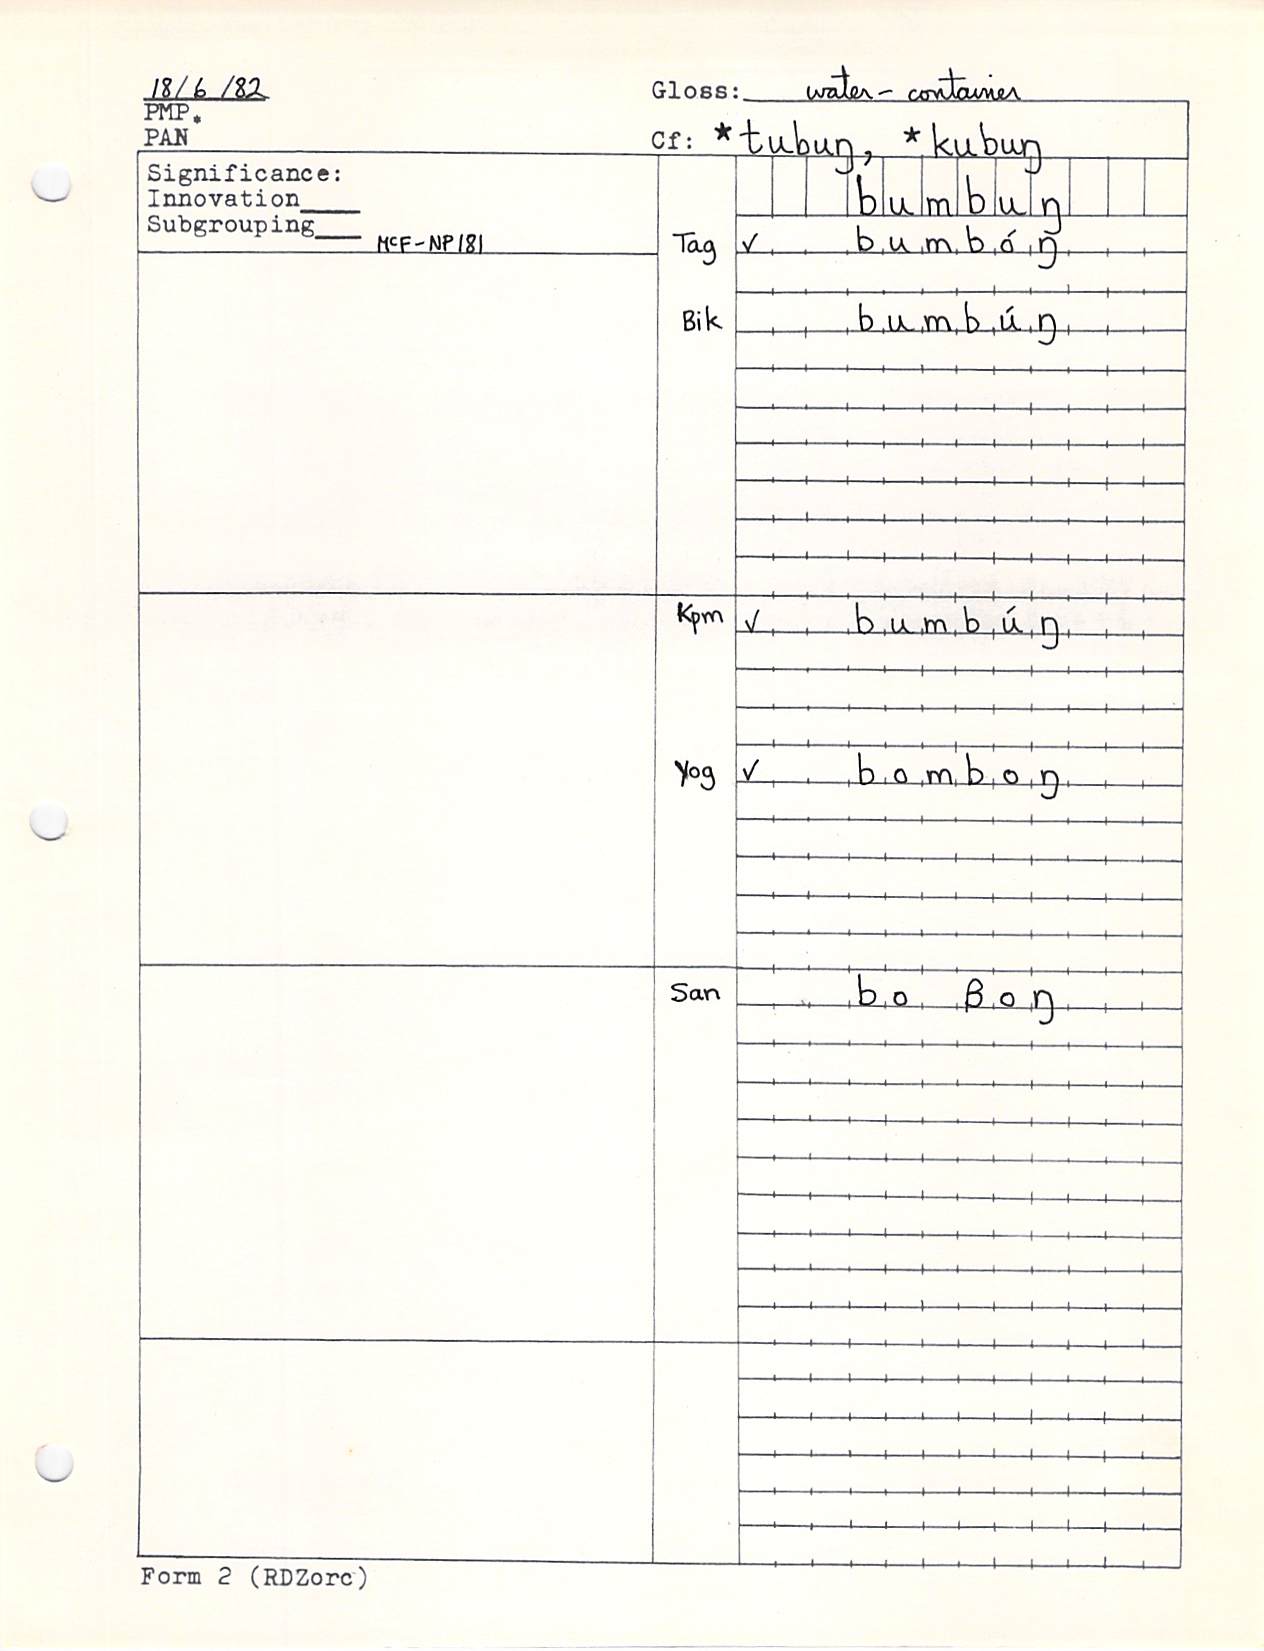 18/6/82 Gloss: water-container
PMP*
PAN Cf: *tubuŋ, *kubuŋ
Significance:
Innovation____
Subgrouping____ McF-NP181
bumbuŋ
Tag ✓ bumbóŋ
Bik bumbúŋ
Kpm ✓ bumbúŋ
Yog ✓ bomboŋ
San bo βoŋ
Form 2 (RDZorc)